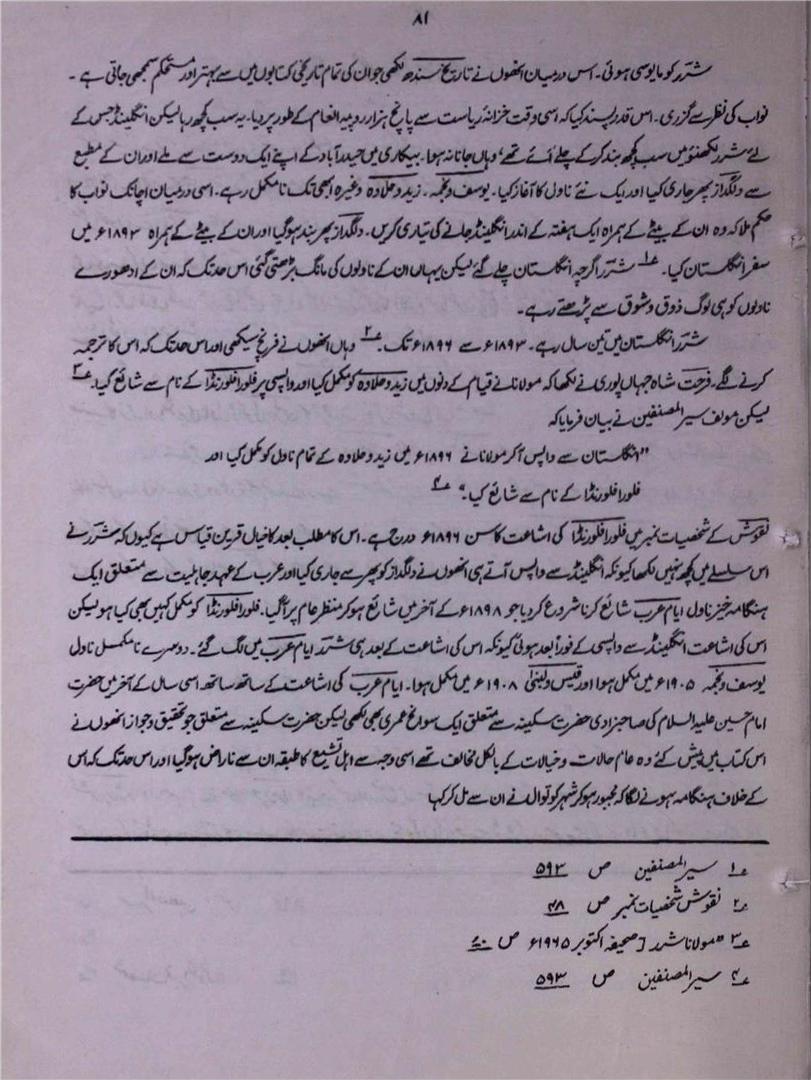 ۸۱
شرر کو مایوسی ہوئی۔ اس درمیان انھوں نے تاریخ سندھ لکھی جو ان کی تمام تاریخی کتابوں میں سے بہتر اور مستحکم سمجھی جاتی ہے۔
نواب کی نظر سے گزری۔ اس قدر پسند کیا کہ اسی وقت خزانۂ ریاست سے پانچ ہزار روپیہ انعام کے طور پر دیا۔ یہ سب کچھ رہا لیکن انگلینڈ جس کے
لیے شرر لکھنؤ میں سب کچھ بند کر کے چلے آئے تھے، وہاں جانا نہ ہوا۔ بیکاری میں حیدرآباد کے اپنے ایک دوست سے ملے اور ان کے مطبع
سے دلگداز پھر جاری کیا اور ایک نئے ناول کا آغاز کیا۔ یوسف و نجمہ۔ زید و حلاوہ وغیرہ ابھی تک نا مکمل رہے۔ اسی درمیان اچانک نواب کا
حکم ملا کہ وہ ان کے بیٹے کے ہمراہ ایک ہفتہ کے اندر انگلینڈ جانے کی تیاری کریں۔ دلگداز پھر بند ہو گیا اور ان کے بیٹے کے ہمراہ ۱۸۹۳ء میں
سفر انگلستان کیا۔ ؏۱ شرر اگرچہ انگلستان چلے گئے لیکن یہاں ان کے ناولوں کی مانگ بڑھتی گئی اس حد تک کہ ان کے ادھورے
ناولوں کو ہی لوگ ذوق و شوق سے پڑھتے رہے۔
شرر انگلستان میں تین سال رہے۔ ۱۸۹۳ء سے ۱۸۹۶ء تک۔ ؏۲ وہاں انھوں نے فرنچ سیکھی اور اس حد تک کہ اس کا ترجمہ
کرنے لگے۔ فرحت شاہ جہاں پوری نے لکھا کہ مولانا نے قیام کے دنوں میں زید و حلاوہ کو مکمل کیا اور واپسی پر فلورا فلورنڈا کے نام سے شائع کیا۔ ؏۳
لیکن مولف سیر المصنفین نے بیان فرمایا کہ
"انگلستان سے واپس آ کر مولانا نے ۱۸۹۶ء میں زید و حلاوہ کے تمام ناول کو مکمل کیا اور
فلورا فلورنڈا کے نام سے شائع کیا۔" ؏۴
نقوش کے شخصیات نمبر میں فلورا فلورنڈا کی اشاعت کا سن ۱۸۹۶ء درج ہے۔ اس کا مطلب بعد کا خیال قرین قیاس ہے کیوں کہ شرر نے
اس سلسلے میں کچھ نہیں لکھا کیونکہ انگلینڈ سے واپس آتے ہی انھوں نے دلگداز کو پھر سے جاری کیا اور عرب کے عہد جاہلیت سے متعلق ایک
ہنگامہ خیز ناول ایام عرب شائع کرنا شروع کر دیا جو ۱۸۹۸ء کے آخر میں شائع ہو کر منظر عام پر آ گیا۔ فلورا فلورنڈا کو مکمل کہیں بھی کیا ہو لیکن
اس کی اشاعت انگلینڈ سے واپسی کے فوراً بعد ہوئی کیونکہ اس کی اشاعت کے بعد ہی شرر ایام عرب میں لگ گئے۔ دوسرے نا مکمل ناول
یوسف و نجمہ ۱۹۰۵ء میں مکمل ہوا اور قیس و لبنیٰ ۱۹۰۸ء میں مکمل ہوا۔ ایام عرب کی اشاعت کے ساتھ ساتھ اسی سال کے آخر میں حضرت
امام حسین علیہ السلام کی صاحبزادی حضرت سکینہ سے متعلق ایک سوانح عمری بھی لکھی لیکن حضرت سکینہ سے متعلق جو تحقیق و جواز انھوں نے
اس کتاب میں پیش کئے وہ عام حالات و خیالات کے بالکل مخالف تھے اسی وجہ سے اہل تشیع کا طبقہ ان سے ناراض ہو گیا اور اس حد تک کہ اس
کے خلاف ہنگامہ ہونے لگا کہ مجبور ہو کر شہر کوتوال نے ان سے مل کر کہا
؏۱ سیر المصنفین ص ۵۹۳
؏۲ نقوش شخصیات نمبر ص ۴۸
؏۳ "مولانا شرر [صحیفہ اکتوبر ۱۹۶۵ء ص
؏۴ سیر المصنفین ص ۵۹۳